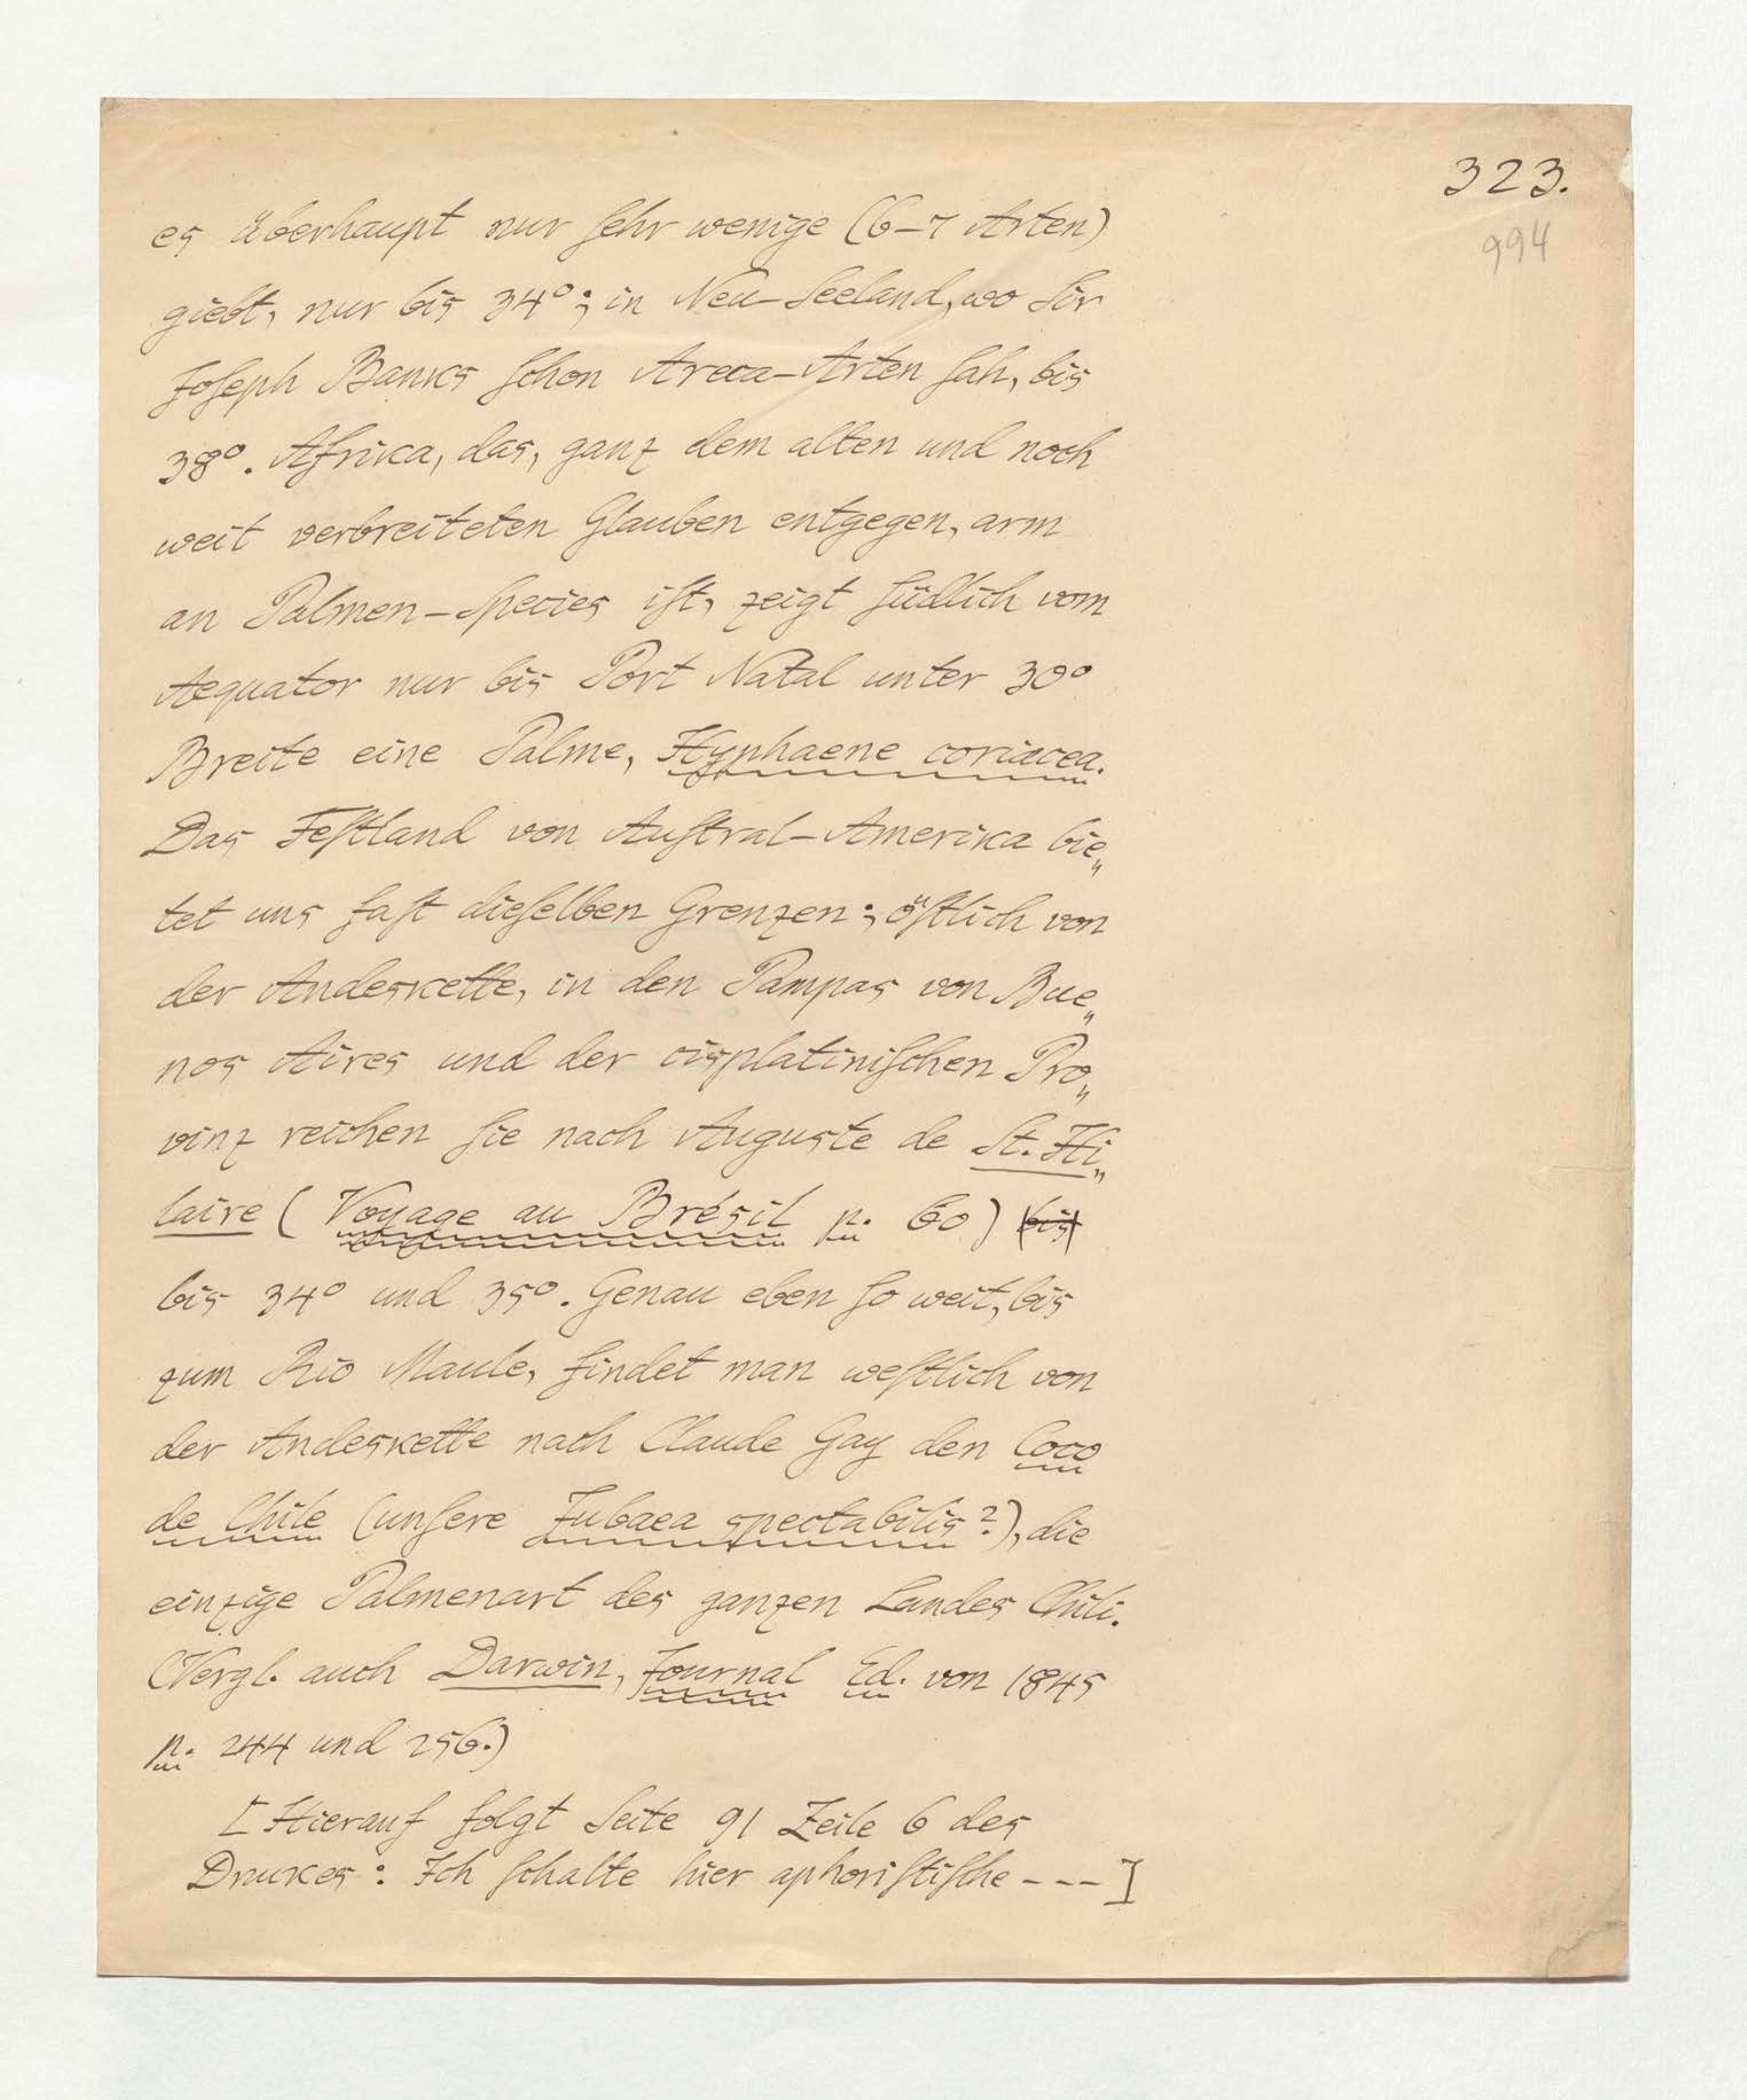 323.
994
es überhaupt nur ſehr wenige (6-7 Arten)
giebt, nur bis 34°; in Neu-Seeland, wo Sir
Joſeph Banks ſchon Areca-Arten ſah, bis
38°. Afrika, das, ganz dem alten und noch
weit verbreiteten Glauben entgegen, arm
an Palmen-Species iſt, zeigt ſüdlich vom
Aequator nur bis Port Natal unter 30°
Breite eine Palme, Hyphaene coriacea.
Das Feſtland von Auſtral-Amerika bie„
tet uns faſt dieſelben Grenzen; öſtlich von
der Andeskette, in den Pampas von Bue„
nos Aires und der cisplatiniſchen Pro„
vinz reichen ſie nach Auguste de St. Hi„
laire (Voyage au Brésil p. 60) (bis)
bis 34° und 35°. Genau eben ſo weit, bis
zum Rio Maule, findet man weſtlich von
der Andeskette nach Claude Gay den Coco
de Chile (unſere Jubaea spectabilis?), die
einzige Palmenart des ganzen Landes Chili.
(Vergl. auch Darwin, Journal Ed. von 1845
p. 244 und 256.)
[Hierauf folgt Seite 91 Zeile 6 des
Druckes: Ich ſchalte hier aphoriſtiſche ---]